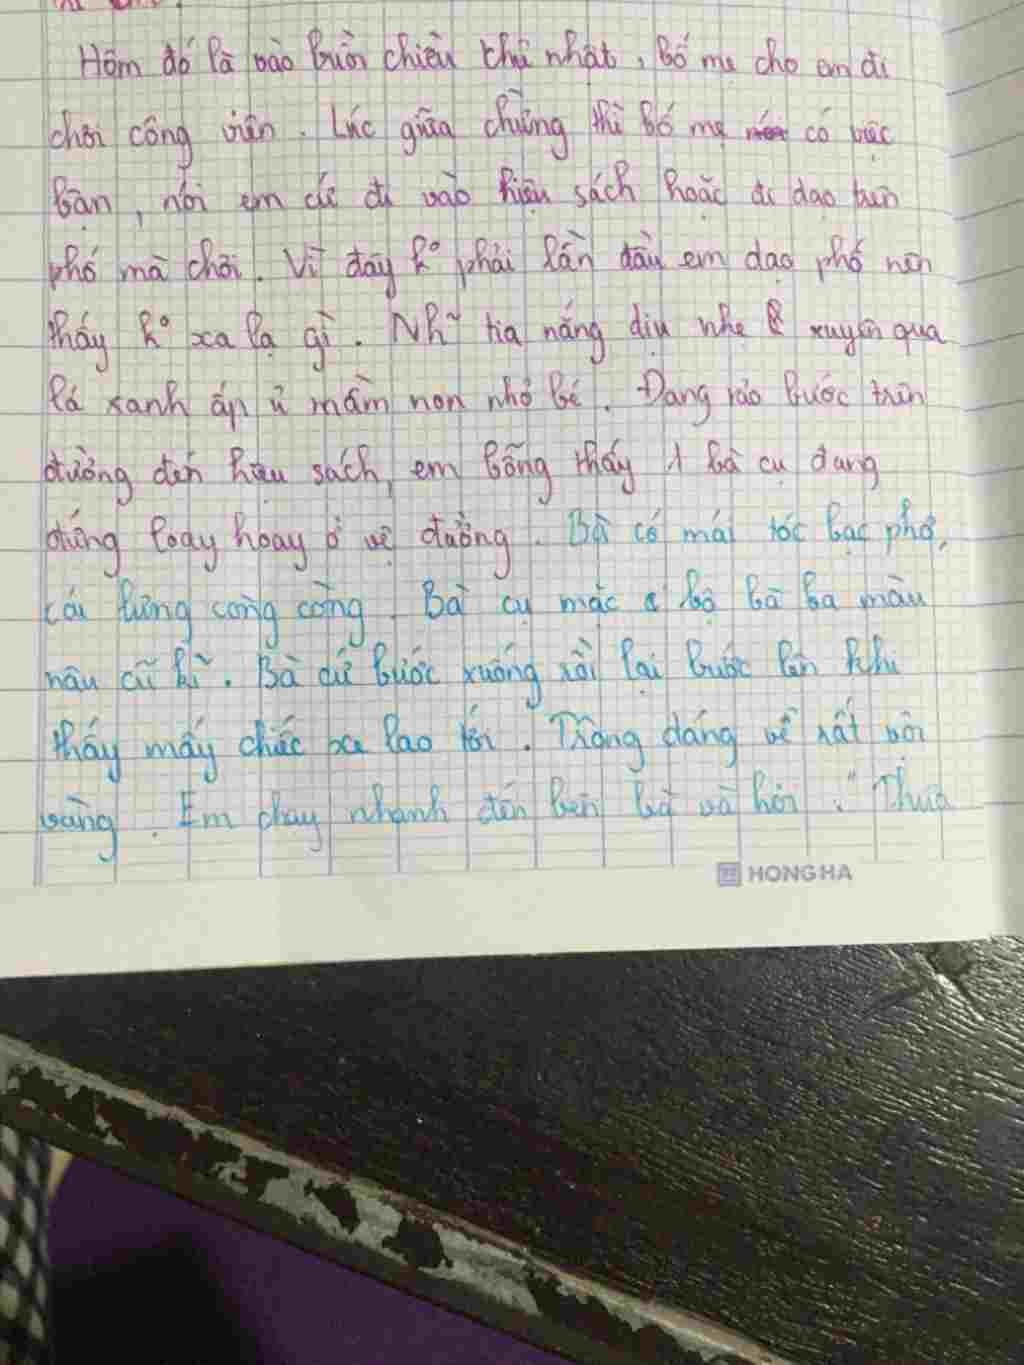 Hôm đó là vào buổi chiều chủ nhật, bố mẹ cho em đi
chơi công viên. Lúc giữa chừng thì bố mẹ có việc
bận, nói em cứ đi vào hiệu sách hoặc đi dạo trên
phố mà chơi. Vì đây kº phải lần đầu em dạo phố nên
thấy kº xa lạ gì. Nh~ tia nắng dịu nhẹ xuyên qua
lá xanh ấp ủ mầm non nhỏ bé. Đang rảo bước trên
đường đến hiệu sách, em bỗng thấy 1 bà cụ đang
đứng loay hoay ở vệ đường. Bà có mái tóc bạc phơ,
cái lưng còng còng. Bà cụ mặc bộ bà ba màu
nâu cũ kĩ. Bà cứ bước xuống rồi lại bước lên khi
thấy mấy chiếc xe lao tới. Trông dáng vẻ rất vội
vàng. Em chạy nhanh đến bên bà và hỏi: "Thưa
HONG HA